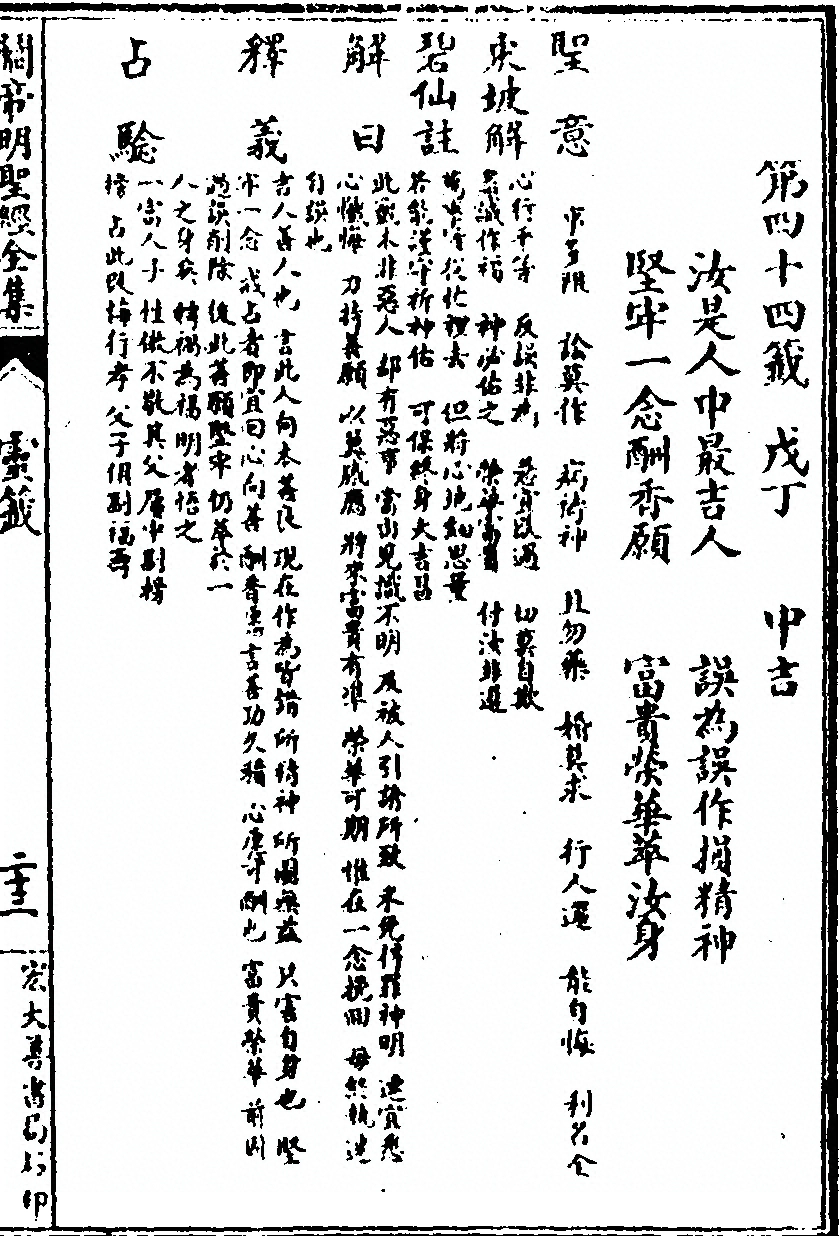 第四十四籤　戊丁　中吉
汝是人中最吉人　誤為誤作損精神
堅牢一念酬香願　富貴榮華萃汝身
聖意　訟莫作　病禱神　且勿藥　婚莫求　行人還　能自悔　利名全
東坡解　心行平等　反誤非為　急宜改過　切莫自欺
若誠作福　神必佑之　榮華富貴　付汝非遲
碧仙註　萬事皆從忙裡去　但將心地細思量
若能謹守祈神佑　可保終身大吉昌
解曰　此籤本非惡人　却有惡事　當由見識不明　反被人引誘所致　未免得罪神明　速宜悉
心懺悔　力持善願　以冀感應　將來富貴有準　榮華可期　惟在一念挽回　毋終執迷
自誤也
釋義　吉人善人也　言此人向本善良　現在作為皆錯　所損神　所圖無益　只害自身也　堅
牢一念　戒占者即宜回心向善　酬香愿　言善功久積　心愿早酬也　富貴榮華　前因
過誤削除　從此善願堅牢　仍萃於一
人之身矣　轉禍為福　明者悟之
占驗　一富人子　性傲不敬其父　屢中副榜
占此改悔行孝　父子俱
關帝明聖經全集
靈籤
宏大善書局石印